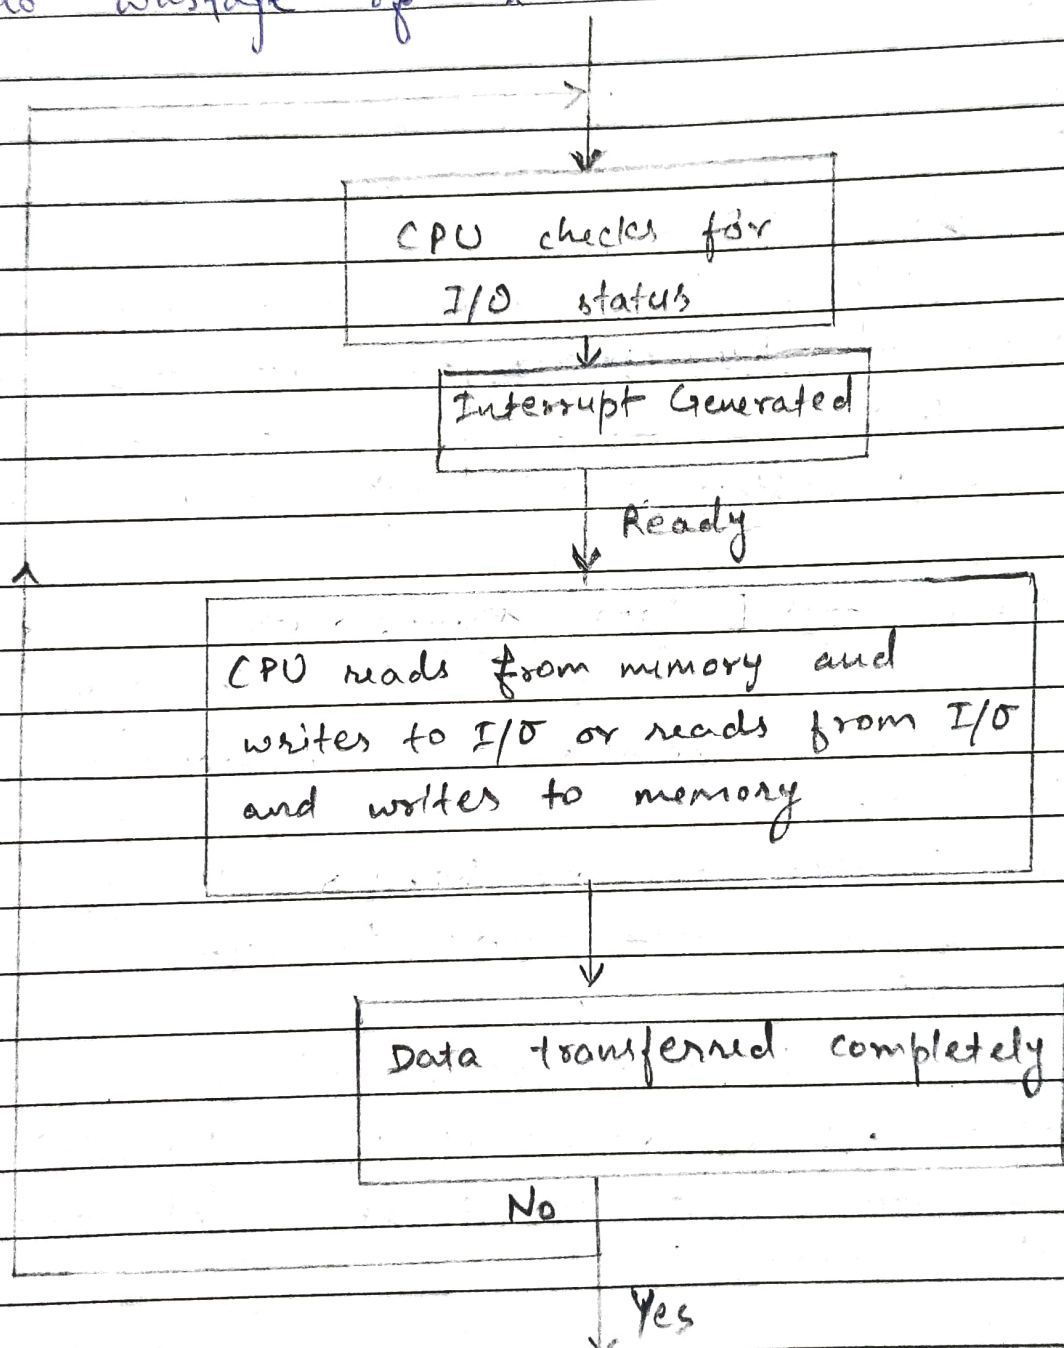 wastage of
CPU checks for
I/O status
Interrupt Generated
Ready
CPU reads from memory and
writes to I/O or reads from I/O
and writes to memory
Data transferred completely
No
Yes